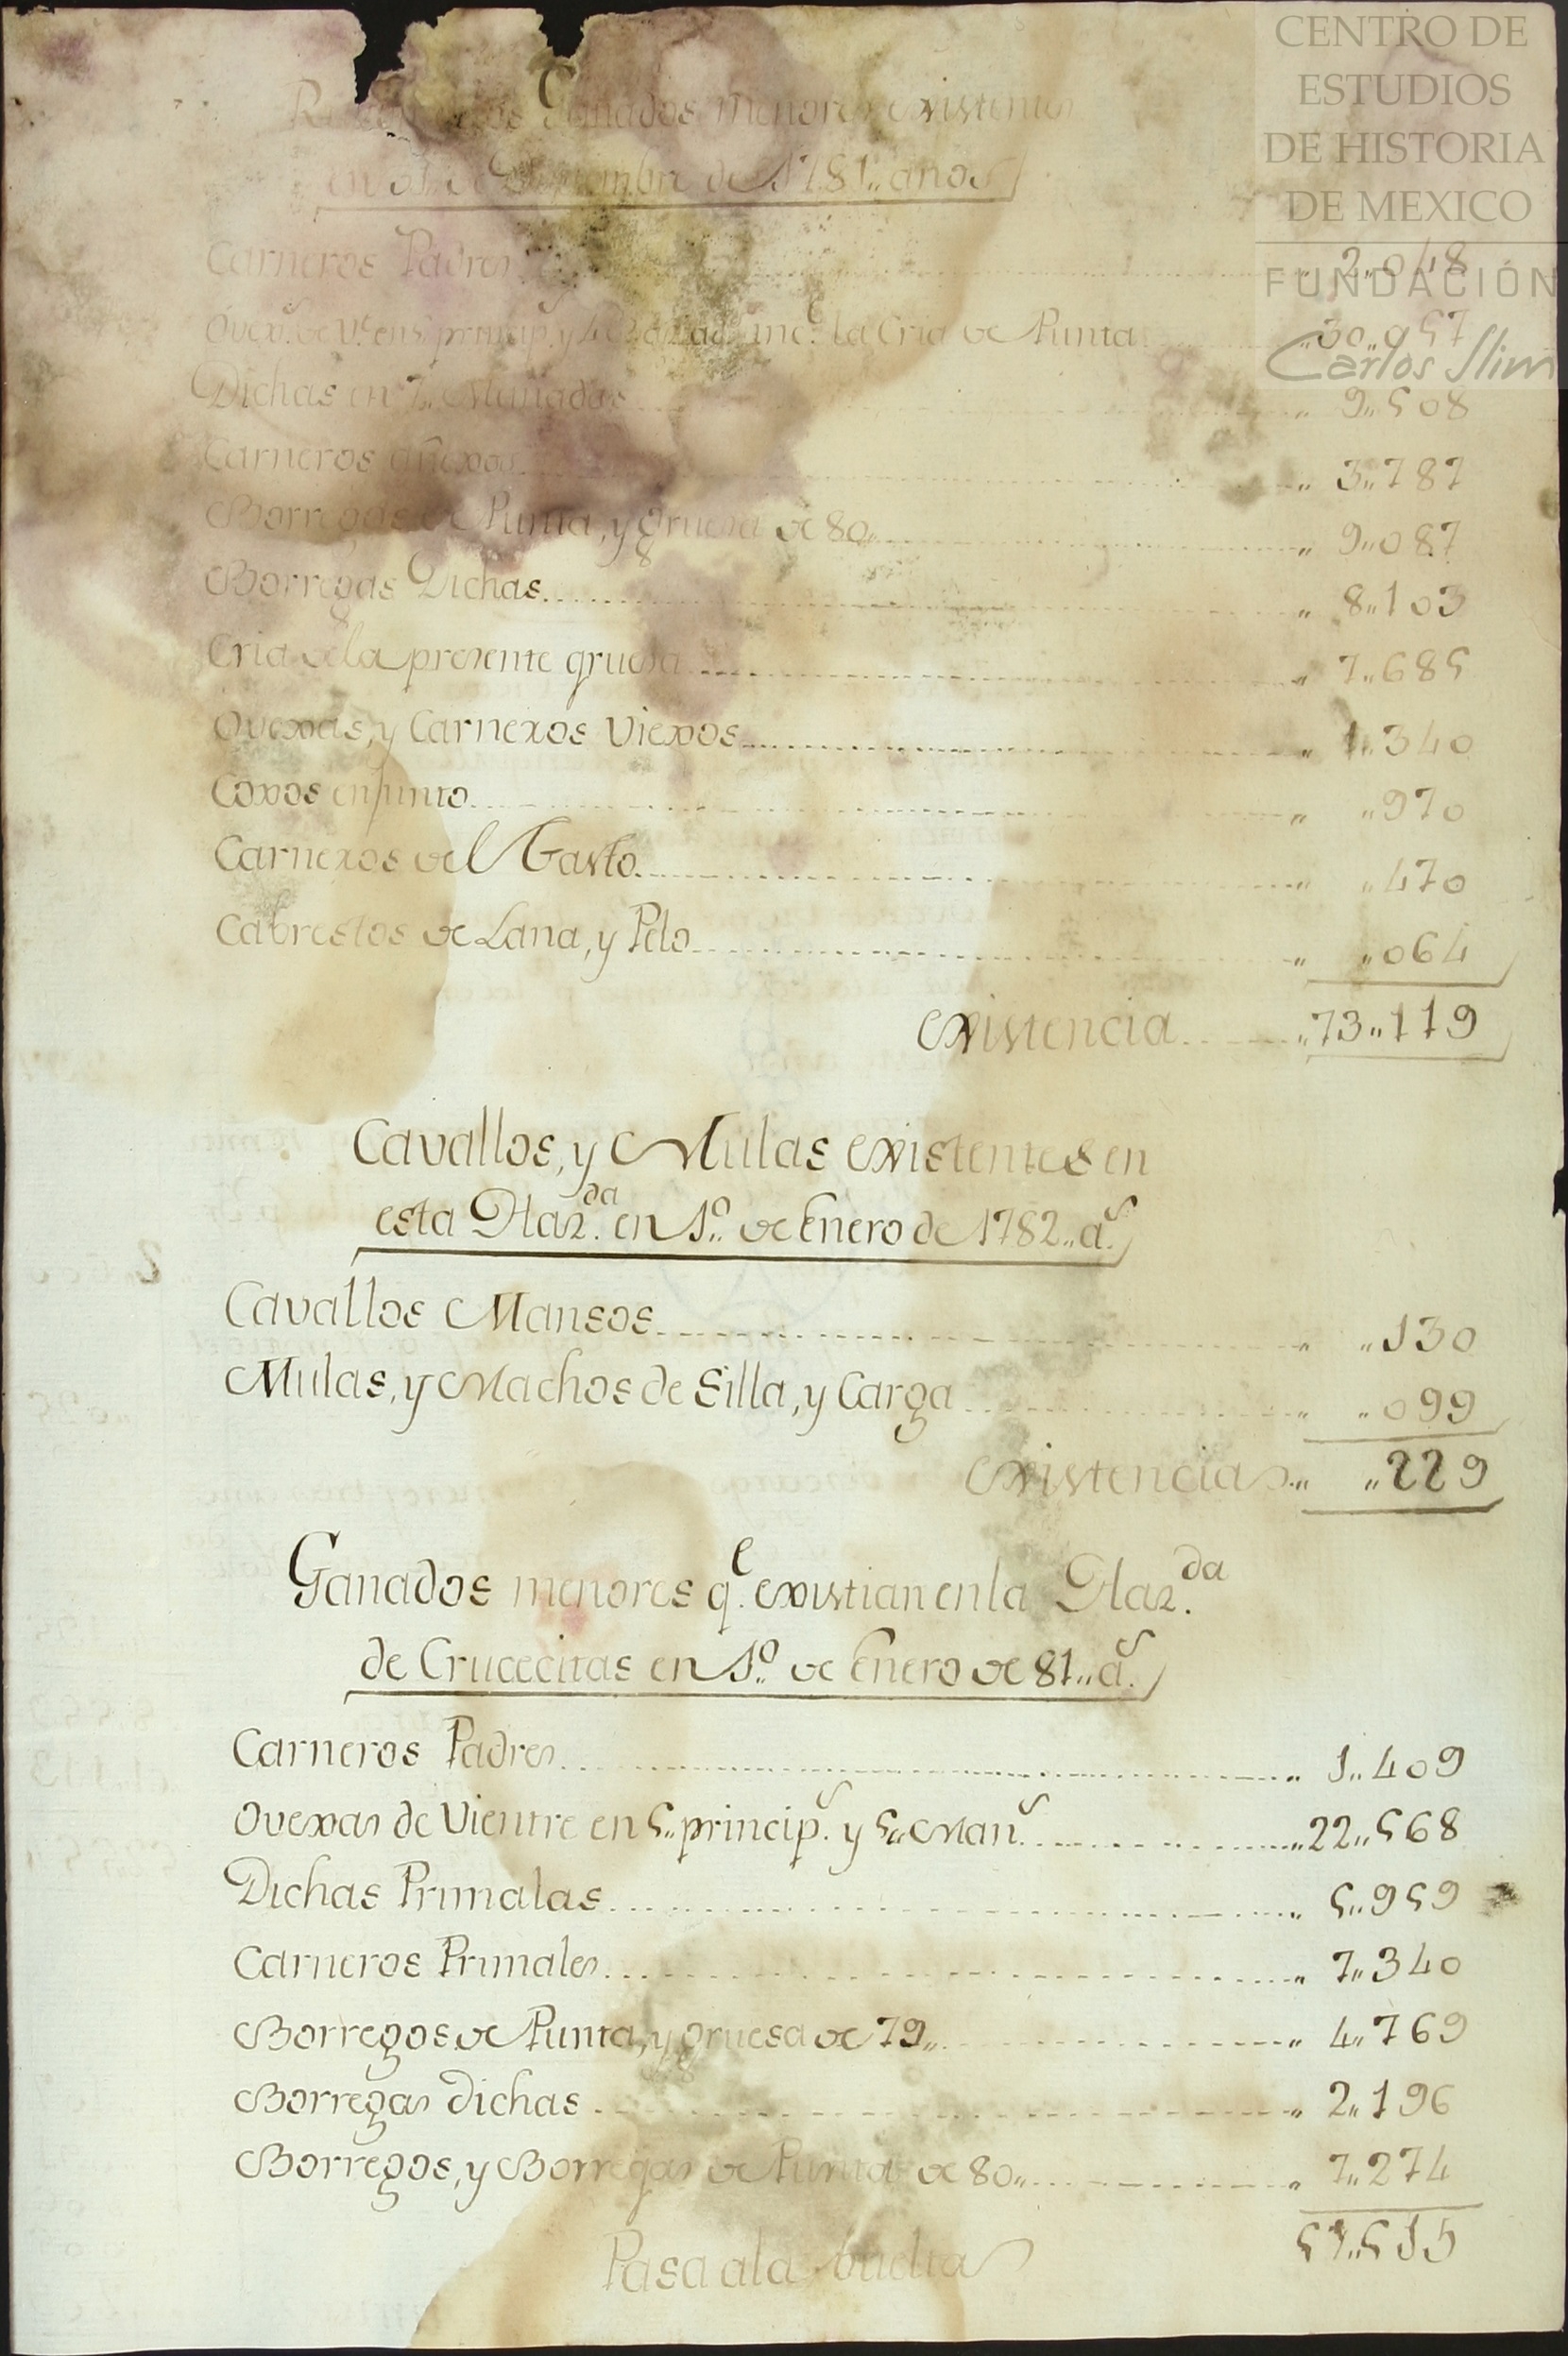 CENTRO DE
ESTUDIOS
DE HISTORIA
DE MEXICO
FUNDACIÓN
Carlos Slim
Ganados menores existentes
en 31 de Diziembre de 1781,, años
Carneros Padres ,, 2,,048
Ovexs. de Vte. en princips. y incs. la Cria de Punta ,,30,,057
Dichas en 7,, Manadas ,, 9,,508
Carneros añexos ,, 3,,787
Borregos de Punta, y gruesa de 80,, ,, 9,,087
Borregas Dichas ,, 8,,103
Cria dela presente gruesa ,, 7,,685
Ovexas, y Carneros Viexos ,, 1,,340
Coxos enjunto ,, ,,970
Carneros del Gasto ,, ,,470
Cabrestos de Lana, y Pelo ,, ,,064
existencia ,,73,,119
Cavallos, y Mulas existentes en
esta Haz.da en 1º,, de Enero de 1782,, as.
Cavallos Mansos ,, ,,130
Mulas, y Machos de Silla, y Carga ,, ,,099
existencias ,, ,,229
Ganados menores qe. existian en la Haz.da
de Crucecitas en 1º,, de Enero de 81,, as.
Carneros Padres ,, 1,,409
Ovexas de Vientre en 5,, princips. y 5,, Mans. ,,22,,568
Dichas Primalas ,, 5,,959
Carneros Primales ,, 7,,340
Borregos de Punta, y gruesa de 79,, ,, 4,,769
Borregas dichas ,, 2,,196
Borregos, y Borregas de Punta de 80,, ,, 7,,274
51,,515
Pasa ala buelta